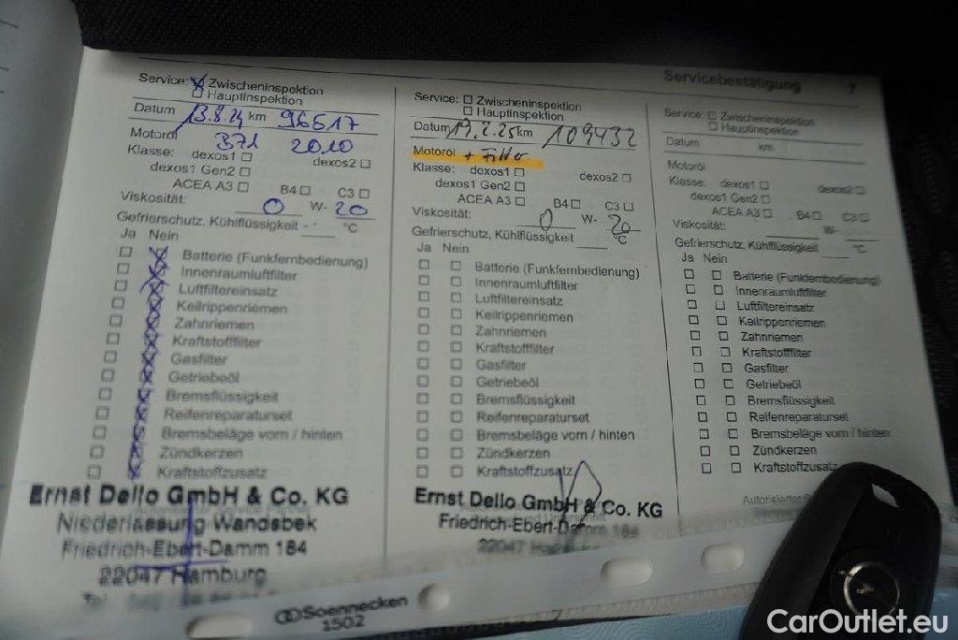 Servicebestätigung 7
Service: Zwischeninspektion
Hauptinspektion
Datum 13.8.24 km 96517
Motoröl 371 2010
Klasse: dexos1 dexos2
dexos1 Gen2
ACEA A3 B4 C3
Viskosität: 0 W- 20
Gefrierschutz, Kühlflüssigkeit - °C
Ja Nein
Batterie (Funkfernbedienung)
Innenraumluftfilter
Luftfiltereinsatz
Keilrippenriemen
Zahnriemen
Kraftstofffilter
Gasfilter
Getriebeöl
Bremsflüssigkeit
Reifenreparaturset
Bremsbeläge vorn / hinten
Zündkerzen
Kraftstoffzusatz
Ernst Dello GmbH & Co. KG
Niederlassung Wandsbek
Friedrich-Ebert-Damm 184
22047 Hamburg
Service: Zwischeninspektion
Hauptinspektion
Datum 19.2.25 km 109432
Motoröl + Filter
Klasse: dexos1 dexos2
dexos1 Gen2
ACEA A3 B4 C3
Viskosität: 0 W- 20
Gefrierschutz, Kühlflüssigkeit °C
Ja Nein
Batterie (Funkfernbedienung)
Innenraumluftfilter
Luftfiltereinsatz
Keilrippenriemen
Zahnriemen
Kraftstofffilter
Gasfilter
Getriebeöl
Bremsflüssigkeit
Reifenreparaturset
Bremsbeläge vorn / hinten
Zündkerzen
Kraftstoffzusatz
Ernst Dello GmbH & Co. KG
Friedrich-Ebert-Damm 184
22047
Service: Zwischeninspektion
Hauptinspektion
Datum km
Motoröl
Klasse: dexos1 dexos2
dexos1 Gen2
ACEA A3 B4 C3
Viskosität: W-
Gefrierschutz, Kühlflüssigkeit °C
Ja Nein
Batterie (Funkfernbedienung)
Innenraumluftfilter
Luftfiltereinsatz
Keilrippenriemen
Zahnriemen
Kraftstofffilter
Gasfilter
Getriebeöl
Bremsflüssigkeit
Reifenreparaturset
Bremsbeläge vorn / hinten
Zündkerzen
Kraftstoffzusatz
Autorisierter
Soennecken
1502
CarOutlet.eu